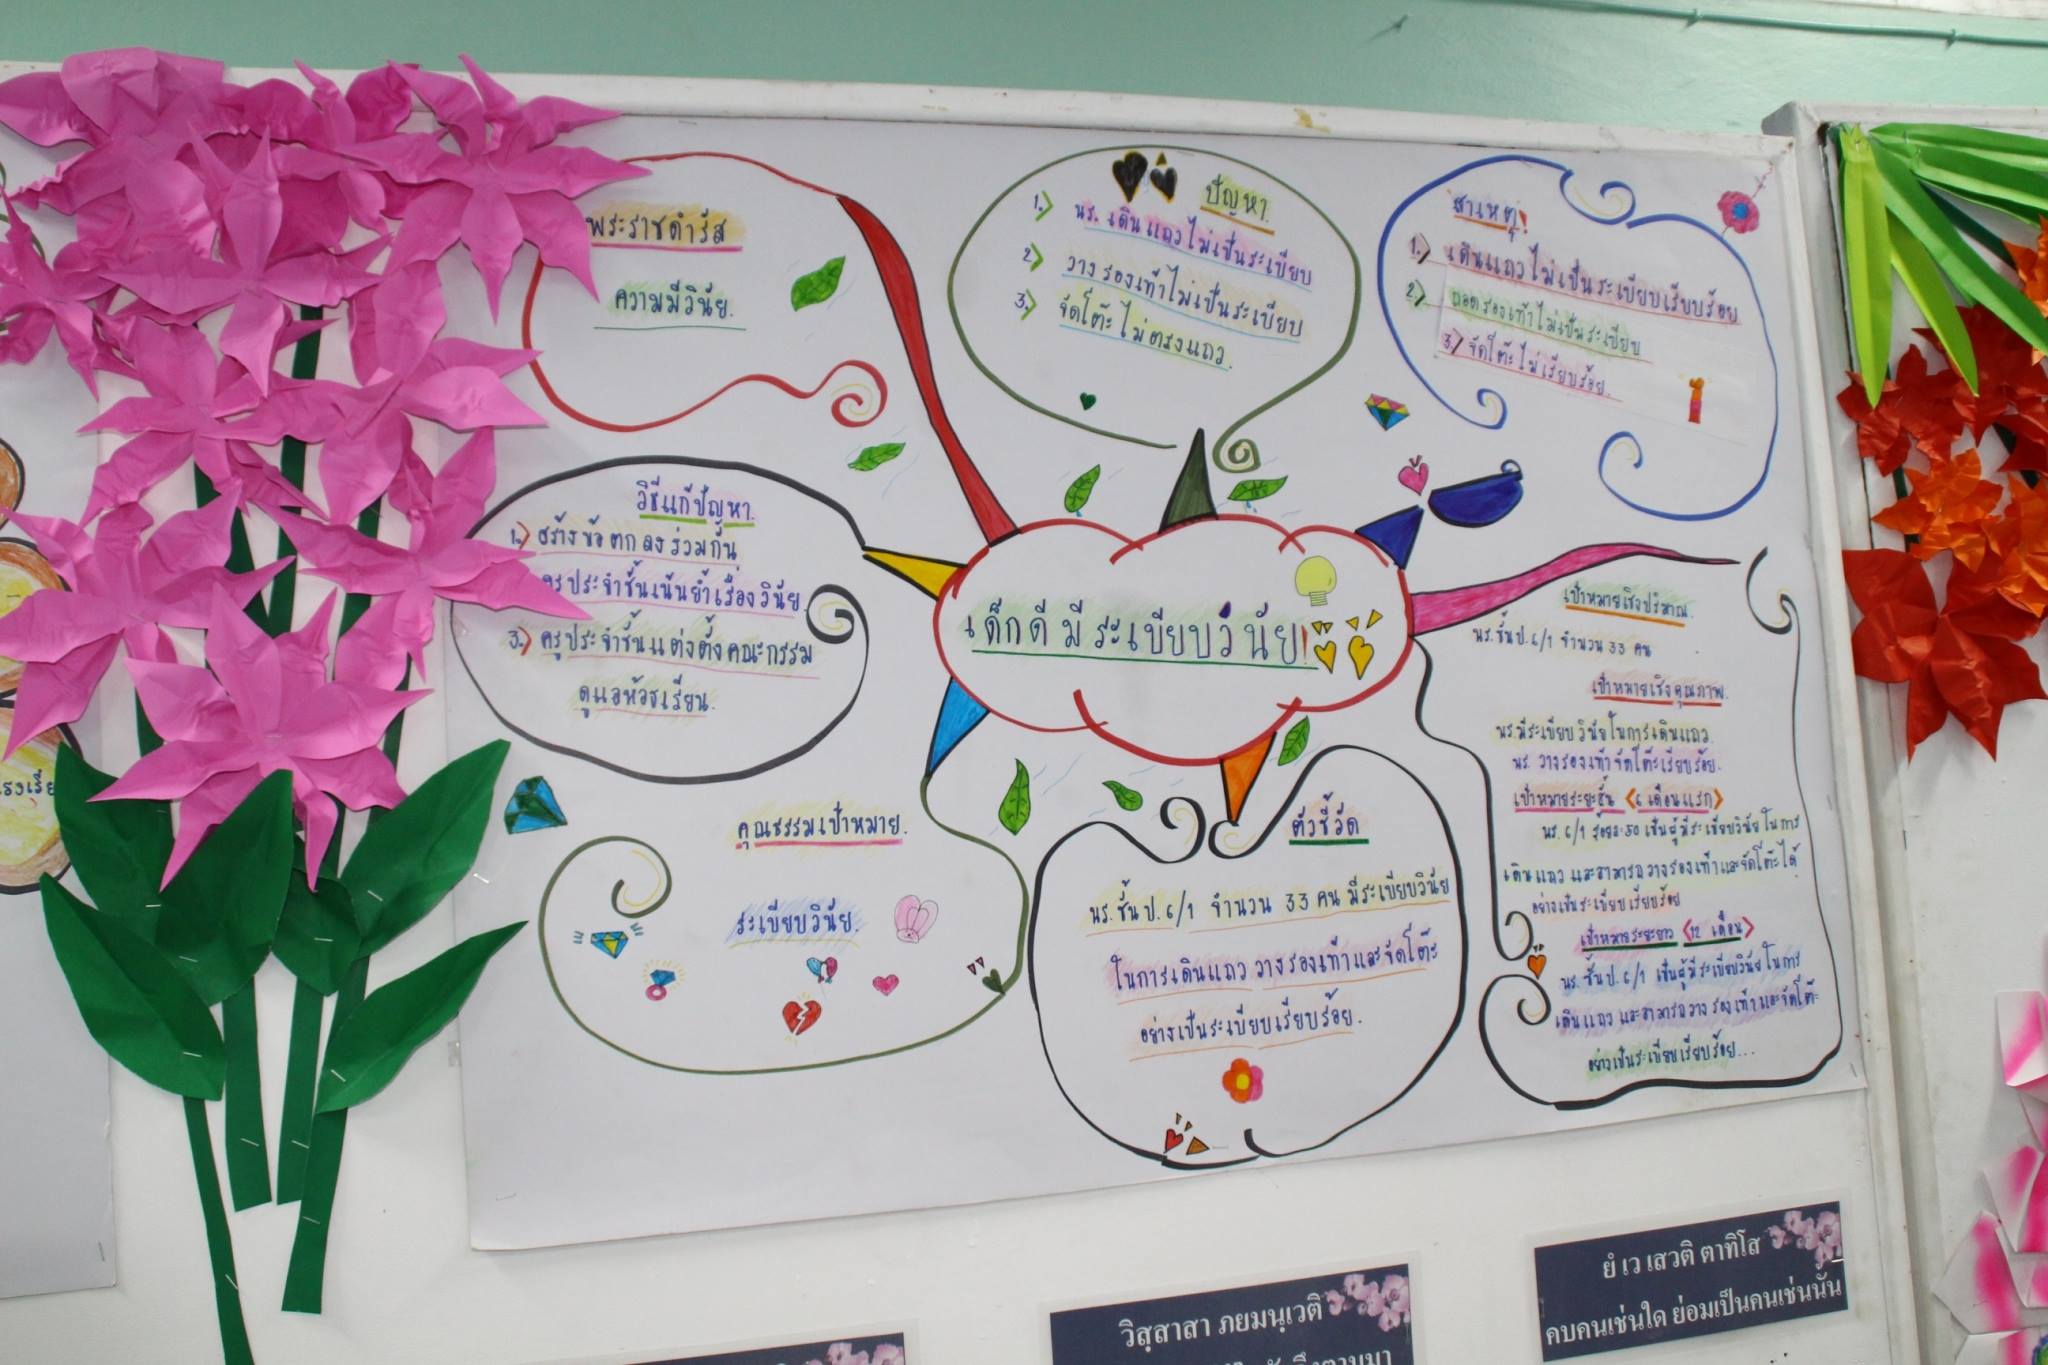 พระราชดำรัส
ความมีวินัย.
ปัญหา.
1.) นร. เดินแถวไม่เป็นระเบียบ
2) วางรองเท้าไม่เป็นระเบียบ
3.) จัดโต๊ะไม่ตรงแถว.
สาเหตุ!
1.) เดินแถวไม่เป็นระเบียบเรียบร้อย
2.) ถอดรองเท้าไม่เป็นระเบียบ
3.) จัดโต๊ะไม่เรียบร้อย.
วิธีแก้ปัญหา.
1.) สร้างข้อตกลงร่วมกัน
ครูประจำชั้นเน้นย้ำเรื่องวินัย
3.) ครูประจำชั้นแต่งตั้งคณะกรรม
ดูแลห้องเรียน.
เด็กดีมีระเบียบวินัย!
เป้าหมายเชิงปริมาณ.
นร.ชั้นป.6/1 จำนวน 33 คน
เป้าหมายเชิงคุณภาพ.
นร.มีระเบียบวินัยในการเดินแถว.
นร. วางรองเท้าจัดโต๊ะเรียบร้อย.
เป้าหมายระยะสั้น <6 เดือนแรก>
นร. 6/1 ร้อยละ 50 เป็นผู้มีระเบียบวินัยในการ
เดินแถว และสามารถวางรองเท้าและจัดโต๊ะได้
อย่างเป็นระเบียบเรียบร้อย
เป้าหมายระยะยาว <12 เดือน>
นร. ชั้นป. 6/1 เป็นผู้มีระเบียบวินัยในการ
เดินแถว และสามารถวางรองเท้าและจัดโต๊ะ
อย่างเป็นระเบียบเรียบร้อย...
คุณธรรมเป้าหมาย.
ระเบียบวินัย.
ตัวชี้วัด
นร.ชั้นป.6/1 จำนวน 33 คนมีระเบียบวินัย
ในการเดินแถว วางรองเท้าและจัดโต๊ะ
อย่างเป็นระเบียบเรียบร้อย.
ยํ เว เสวติ ตาทิโส
คบคนเช่นใด ย่อมเป็นคนเช่นนั้น
วิสฺสาสา ภยมนฺเวติ